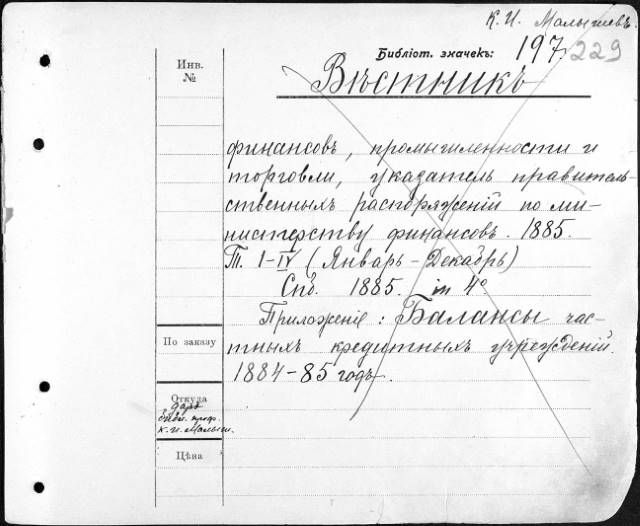 К. И. Малышевъ.
Библіот. значекъ: 197. 229
Инв.
№
Вѣстникъ
финансовъ, промышленности и
торговли, указатель правитель-
ственныхъ распоряженій по ми-
нистерству финансовъ. 1885.
Т. I-IV (Январь-Декабрь)
Спб. 1885. in 4°
Приложеніе: Балансы час-
тныхъ кредитныхъ учрежденій.
1884-85 годъ.
По заказу
Откуда
даръ
библ. проф.
К. И. Малыш.
Цѣна